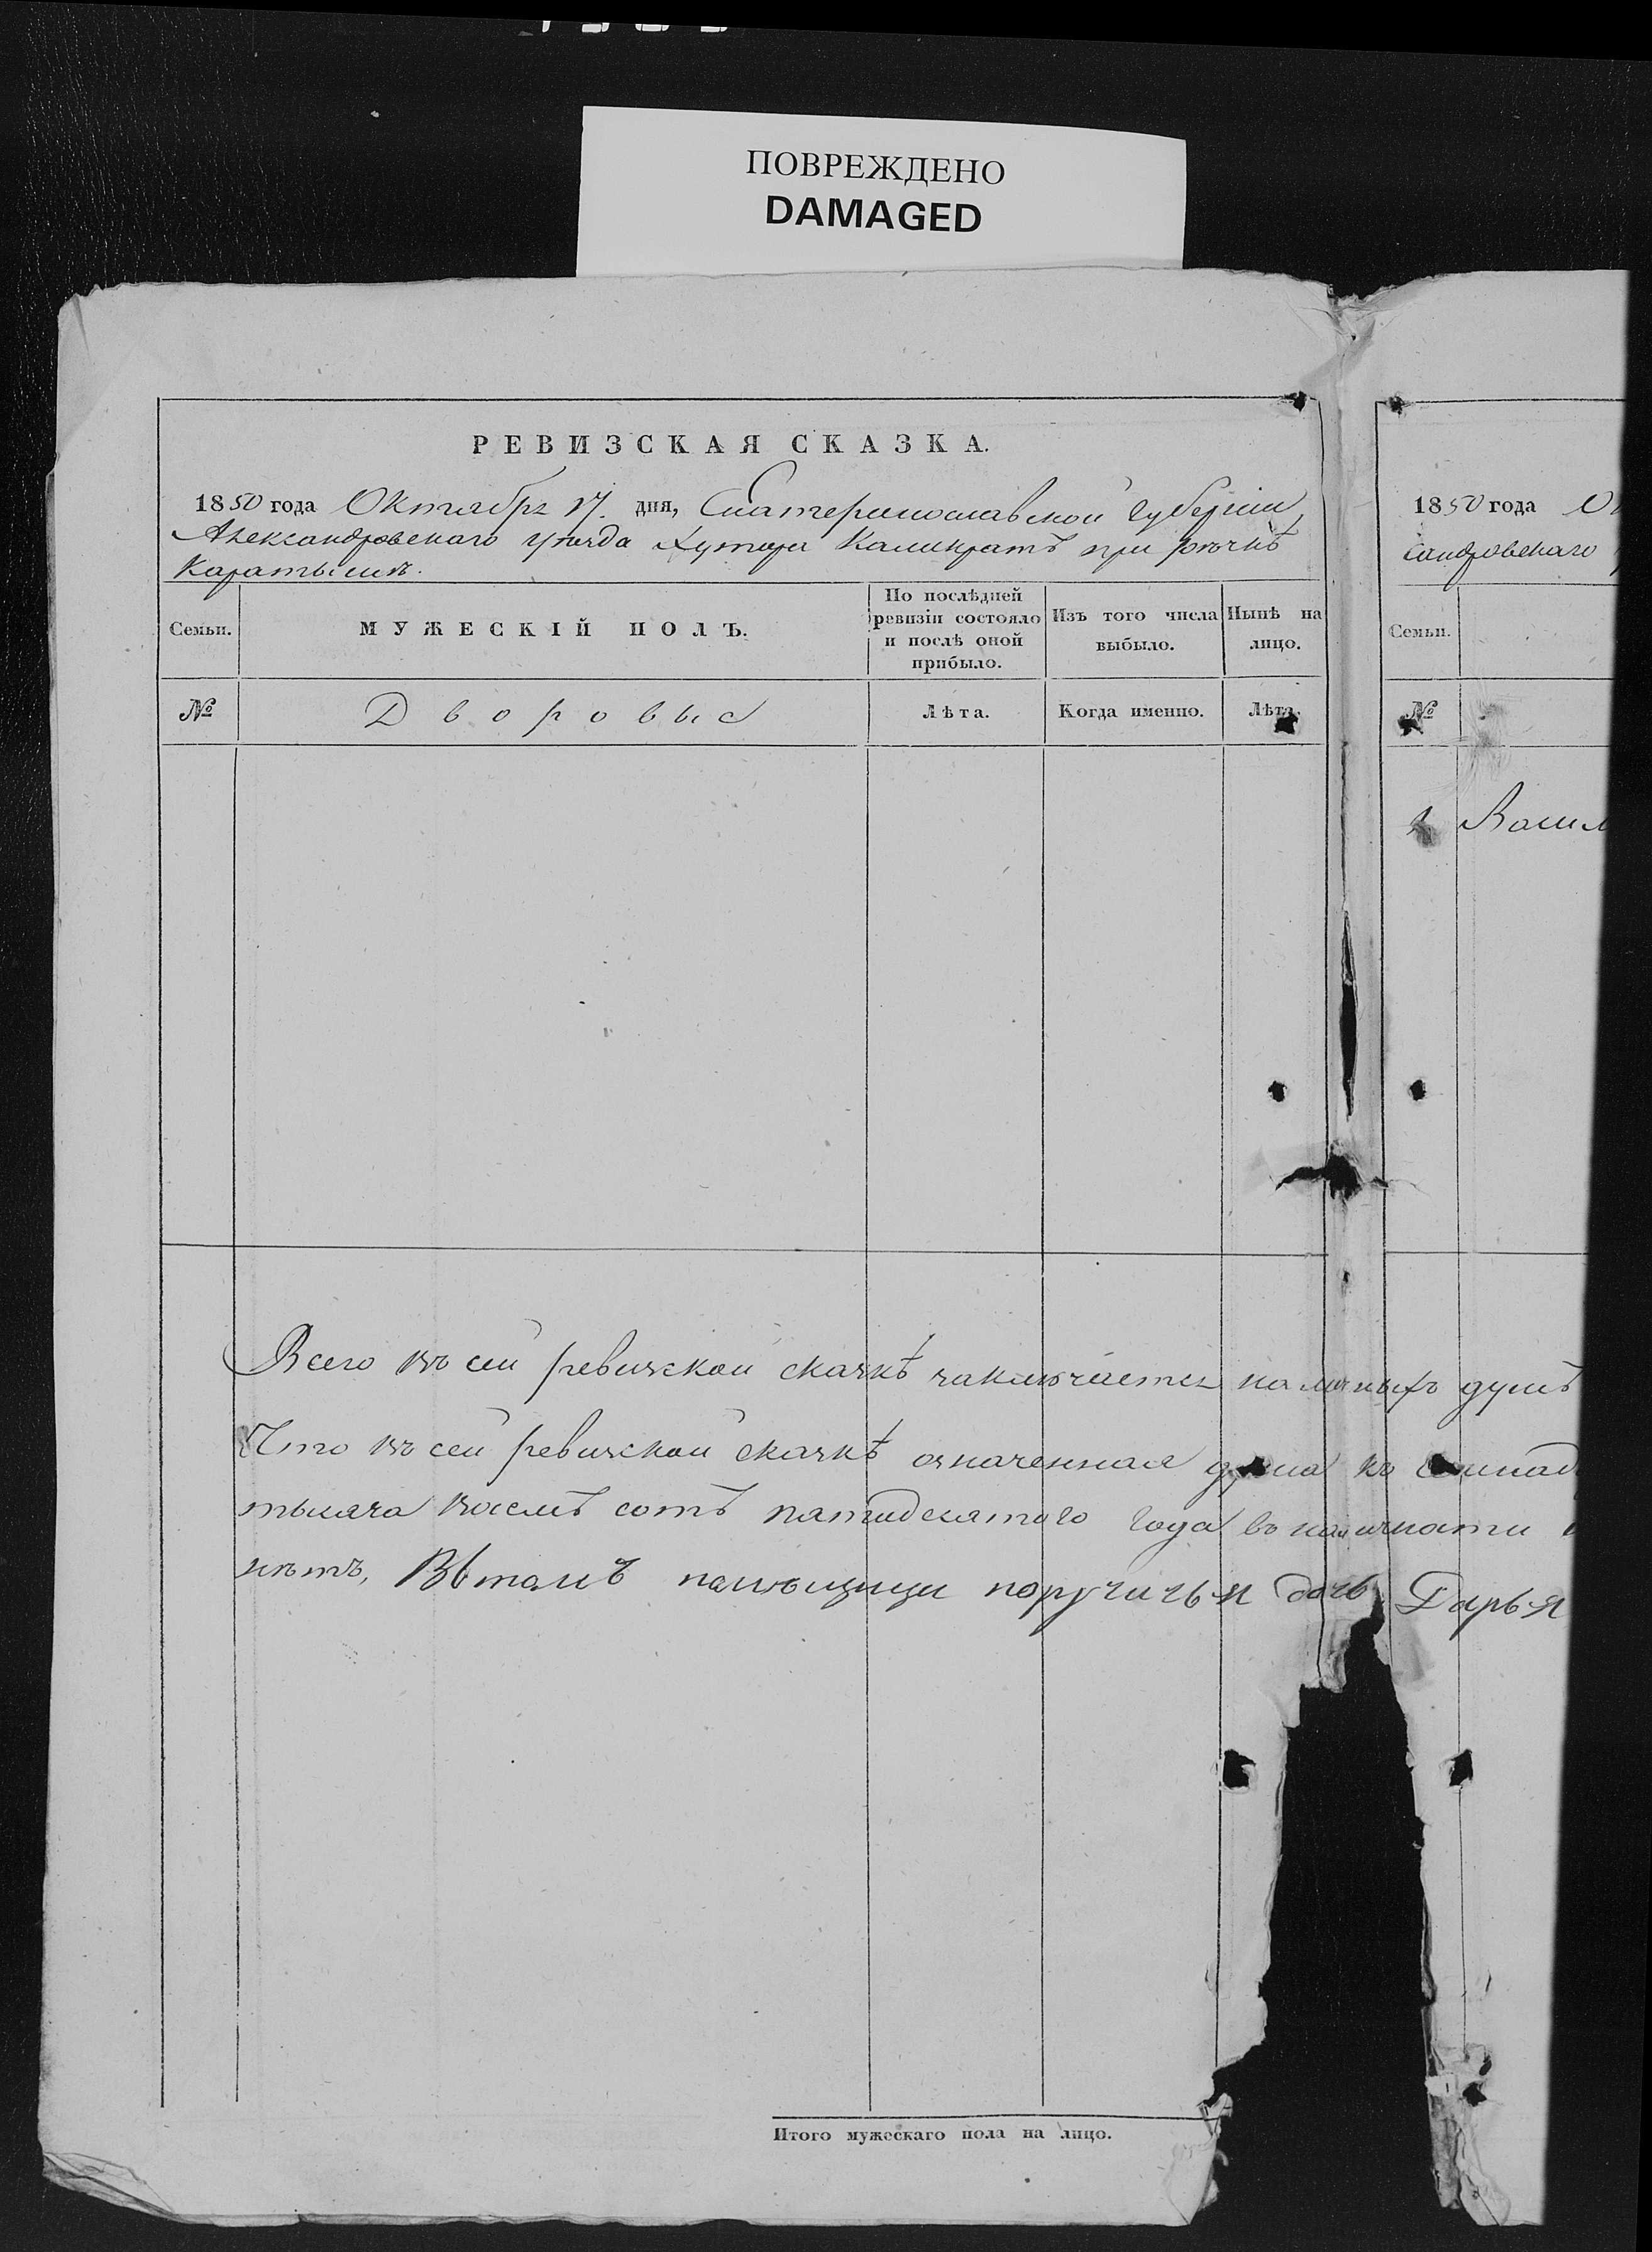 ПОВРЕЖДЕНО
DAMAGED
РЕВИЗСКАЯ СКАЗКА.
1850 года Октября 17. дня, Екатеринославской губернии
Александровского уѣзда хутора Каликратъ при рѣчкѣ
Каратышѣ.
Семьи.
МУЖЕСКІЙ ПОЛЪ.
По послѣдней ревизіи состояло и послѣ оной прибыло.
Изъ того числа выбыло.
Нынѣ на лицо.
№
Дворовые
Лѣта.
Когда именно.
Лѣта.
Всего въ сей ревизской сказкѣ заключается наличныхъ душъ
Что въ сей ревизской сказкѣ означенная душа къ
тысяча восемъ сотъ пятидесятого года въ наличности
нѣтъ, Вътомъ помѣщица поручичья дочь Дарья
Итого мужескаго пола на лицо.
1850 года
сандровскаго
Семьи.
№
1 Васил